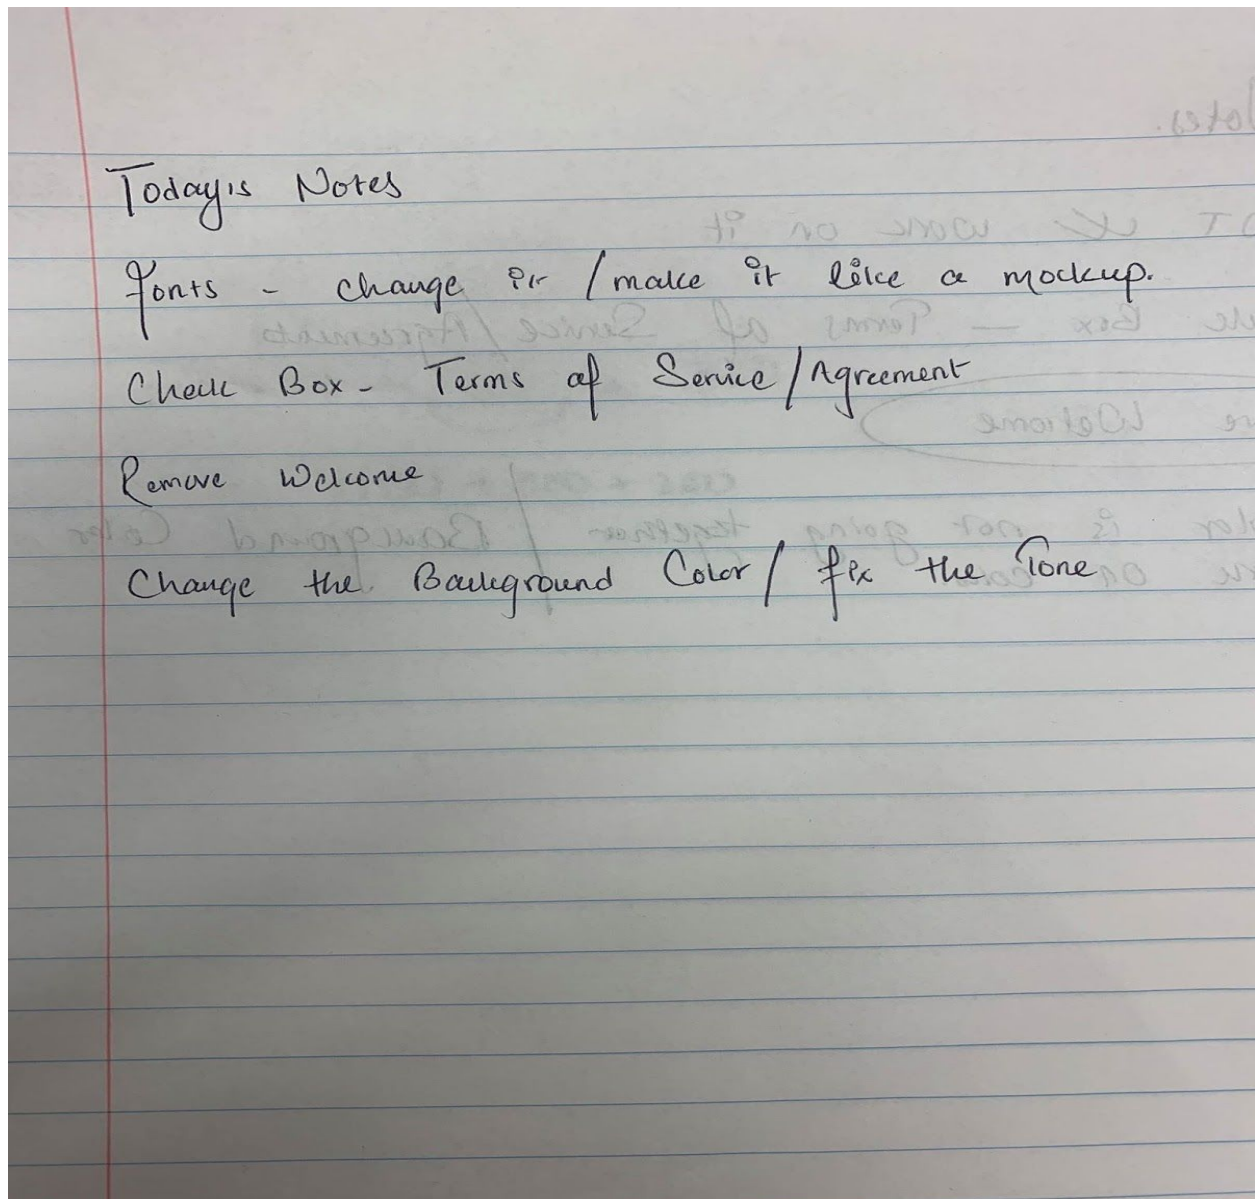 Today's Notes
Fonts - change it / make it like a mockup.
Check Box - Terms of Service / Agreement
Remove Welcome
Change the Background Color / fix the Tone